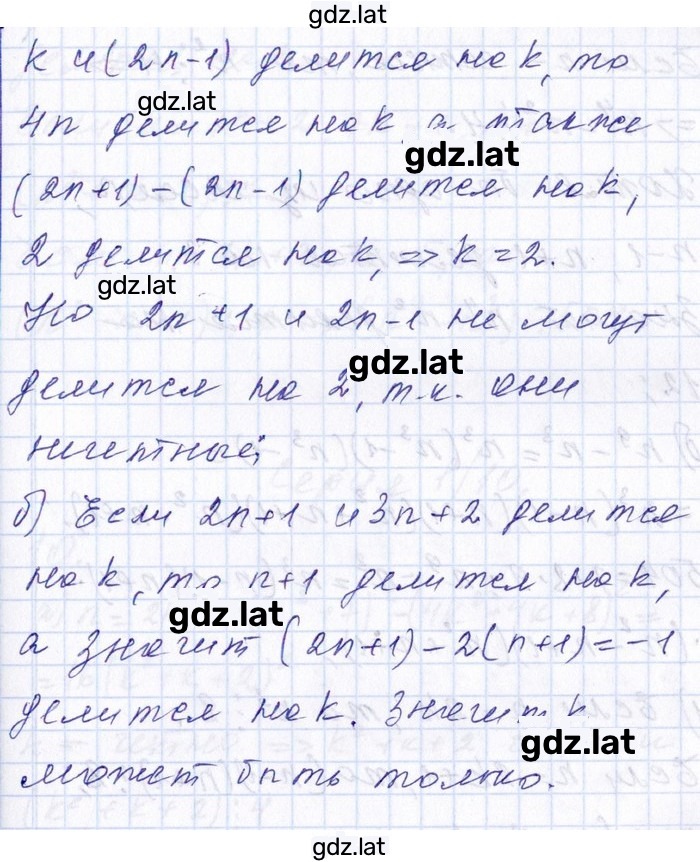 gdz.lat
k и (2n-1) делится на k, то
gdz.lat
4n делится на k а также
gdz.lat
(2n+1)-(2n-1) делится на k,
2 делится на k, => k=2.
gdz.lat
Но 2n+1 и 2n-1 не могут
gdz.lat
делится на 2, т.к. они
нечетные;
б) Если 2n+1 и 3n+2 делится
на k, то n+1 делится на k,
gdz.lat
а значит (2n+1)-2(n+1)=-1
делится на k. Значит k
gdz.lat
может быть только.
gdz.lat